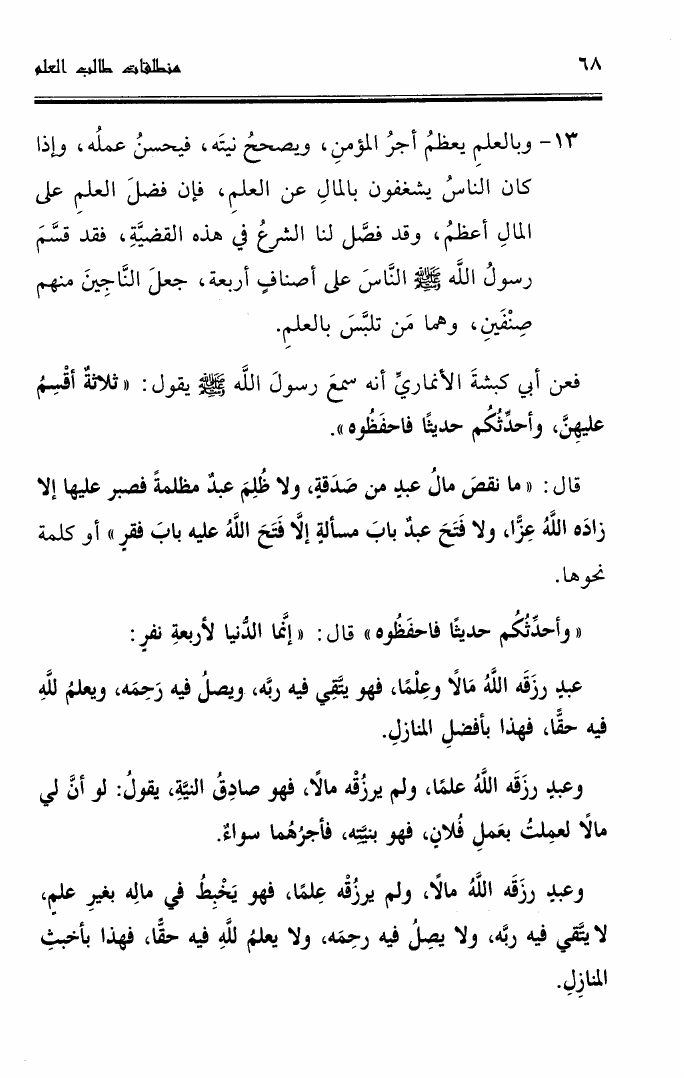 ٦٨ منطلقات طالب العلم
١٣- وبالعلمِ يعظمُ أجرُ المؤمنِ، ويصححُ نيتَه، فيحسنُ عملُه، وإذا
كان الناسُ يشغفون بالمالِ عن العلمِ، فإن فضلَ العلمِ على
المالِ أعظمُ، وقد فصَّل لنا الشرعُ في هذه القضيَّةِ، فقد قسَّمَ
رسولُ اللَّه ﷺ النَّاسَ على أصنافٍ أربعة، جعلَ النَّاجِينَ منهم
صِنْفَينِ، وهما مَن تلبَّسَ بالعلمِ.
فعن أبي كبشةَ الأنماريِّ أنه سمعَ رسولَ اللَّه ﷺ يقول: «ثلاثةٌ أقْسِمُ
عليهِنَّ، وأحدِّثُكُم حديثًا فاحفَظُوه».
قال: «ما نقصَ مالُ عبدٍ من صَدَقةٍ، ولا ظُلِمَ عبدٌ مظلمةً فصبر عليها إلا
زادَه اللَّهُ عِزًّا، ولا فَتَحَ عبدٌ بابَ مسألةٍ إلَّا فَتَحَ اللَّهُ عليه بابَ فقرٍ» أو كلمة
نحوها.
«وأحدِّثُكُم حديثًا فاحفَظُوه» قال: «إنَّما الدُّنيا لأربعةِ نفرٍ:
عبدٍ رزَقَه اللَّهُ مَالًا وعِلْمًا، فهو يتَّقِي فيه ربَّه، ويصلُ فيه رَحِمَه، ويعلمُ للَّهِ
فيه حقًّا، فهذا بأفضلِ المنازلِ.
وعبدٍ رزَقَه اللَّهُ علمًا، ولم يرزُقْه مالًا، فهو صادِقُ النيَّةِ، يقولُ: لو أنَّ لي
مالًا لعمِلتُ بعَملِ فُلانٍ، فهو بنيَّتِه، فأجرُهُما سواءٌ.
وعبدٍ رزَقَه اللَّهُ مالًا، ولم يرزُقْه عِلمًا، فهو يَخْبِطُ في مالِه بغيرِ علمٍ،
لا يتَّقي فيه ربَّه، ولا يصِلُ فيه رحِمَه، ولا يعلمُ للَّهِ فيه حقًّا، فهذا بأخبثِ
المنازِلِ.